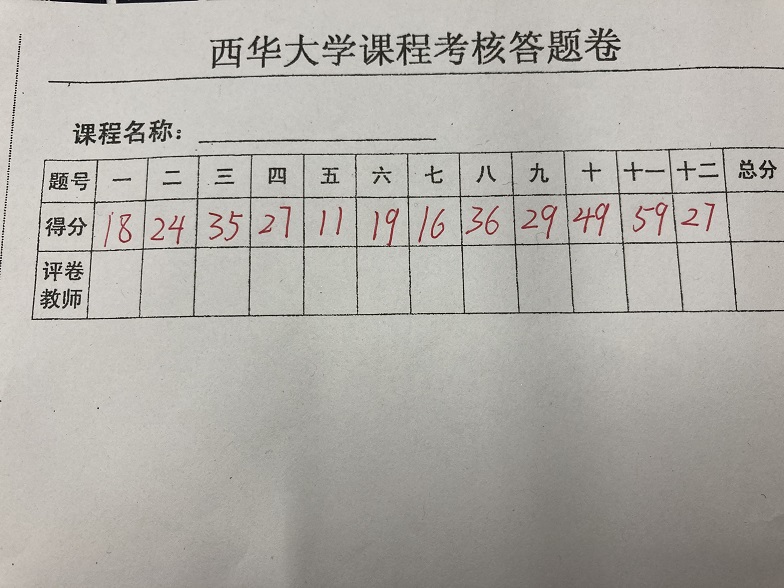 西华大学课程考核答题卷
课程名称：
题号 一 二 三 四 五 六 七 八 九 十 十一 十二 总分
得分 18 24 35 27 11 19 16 36 29 49 59 27
评卷
教师